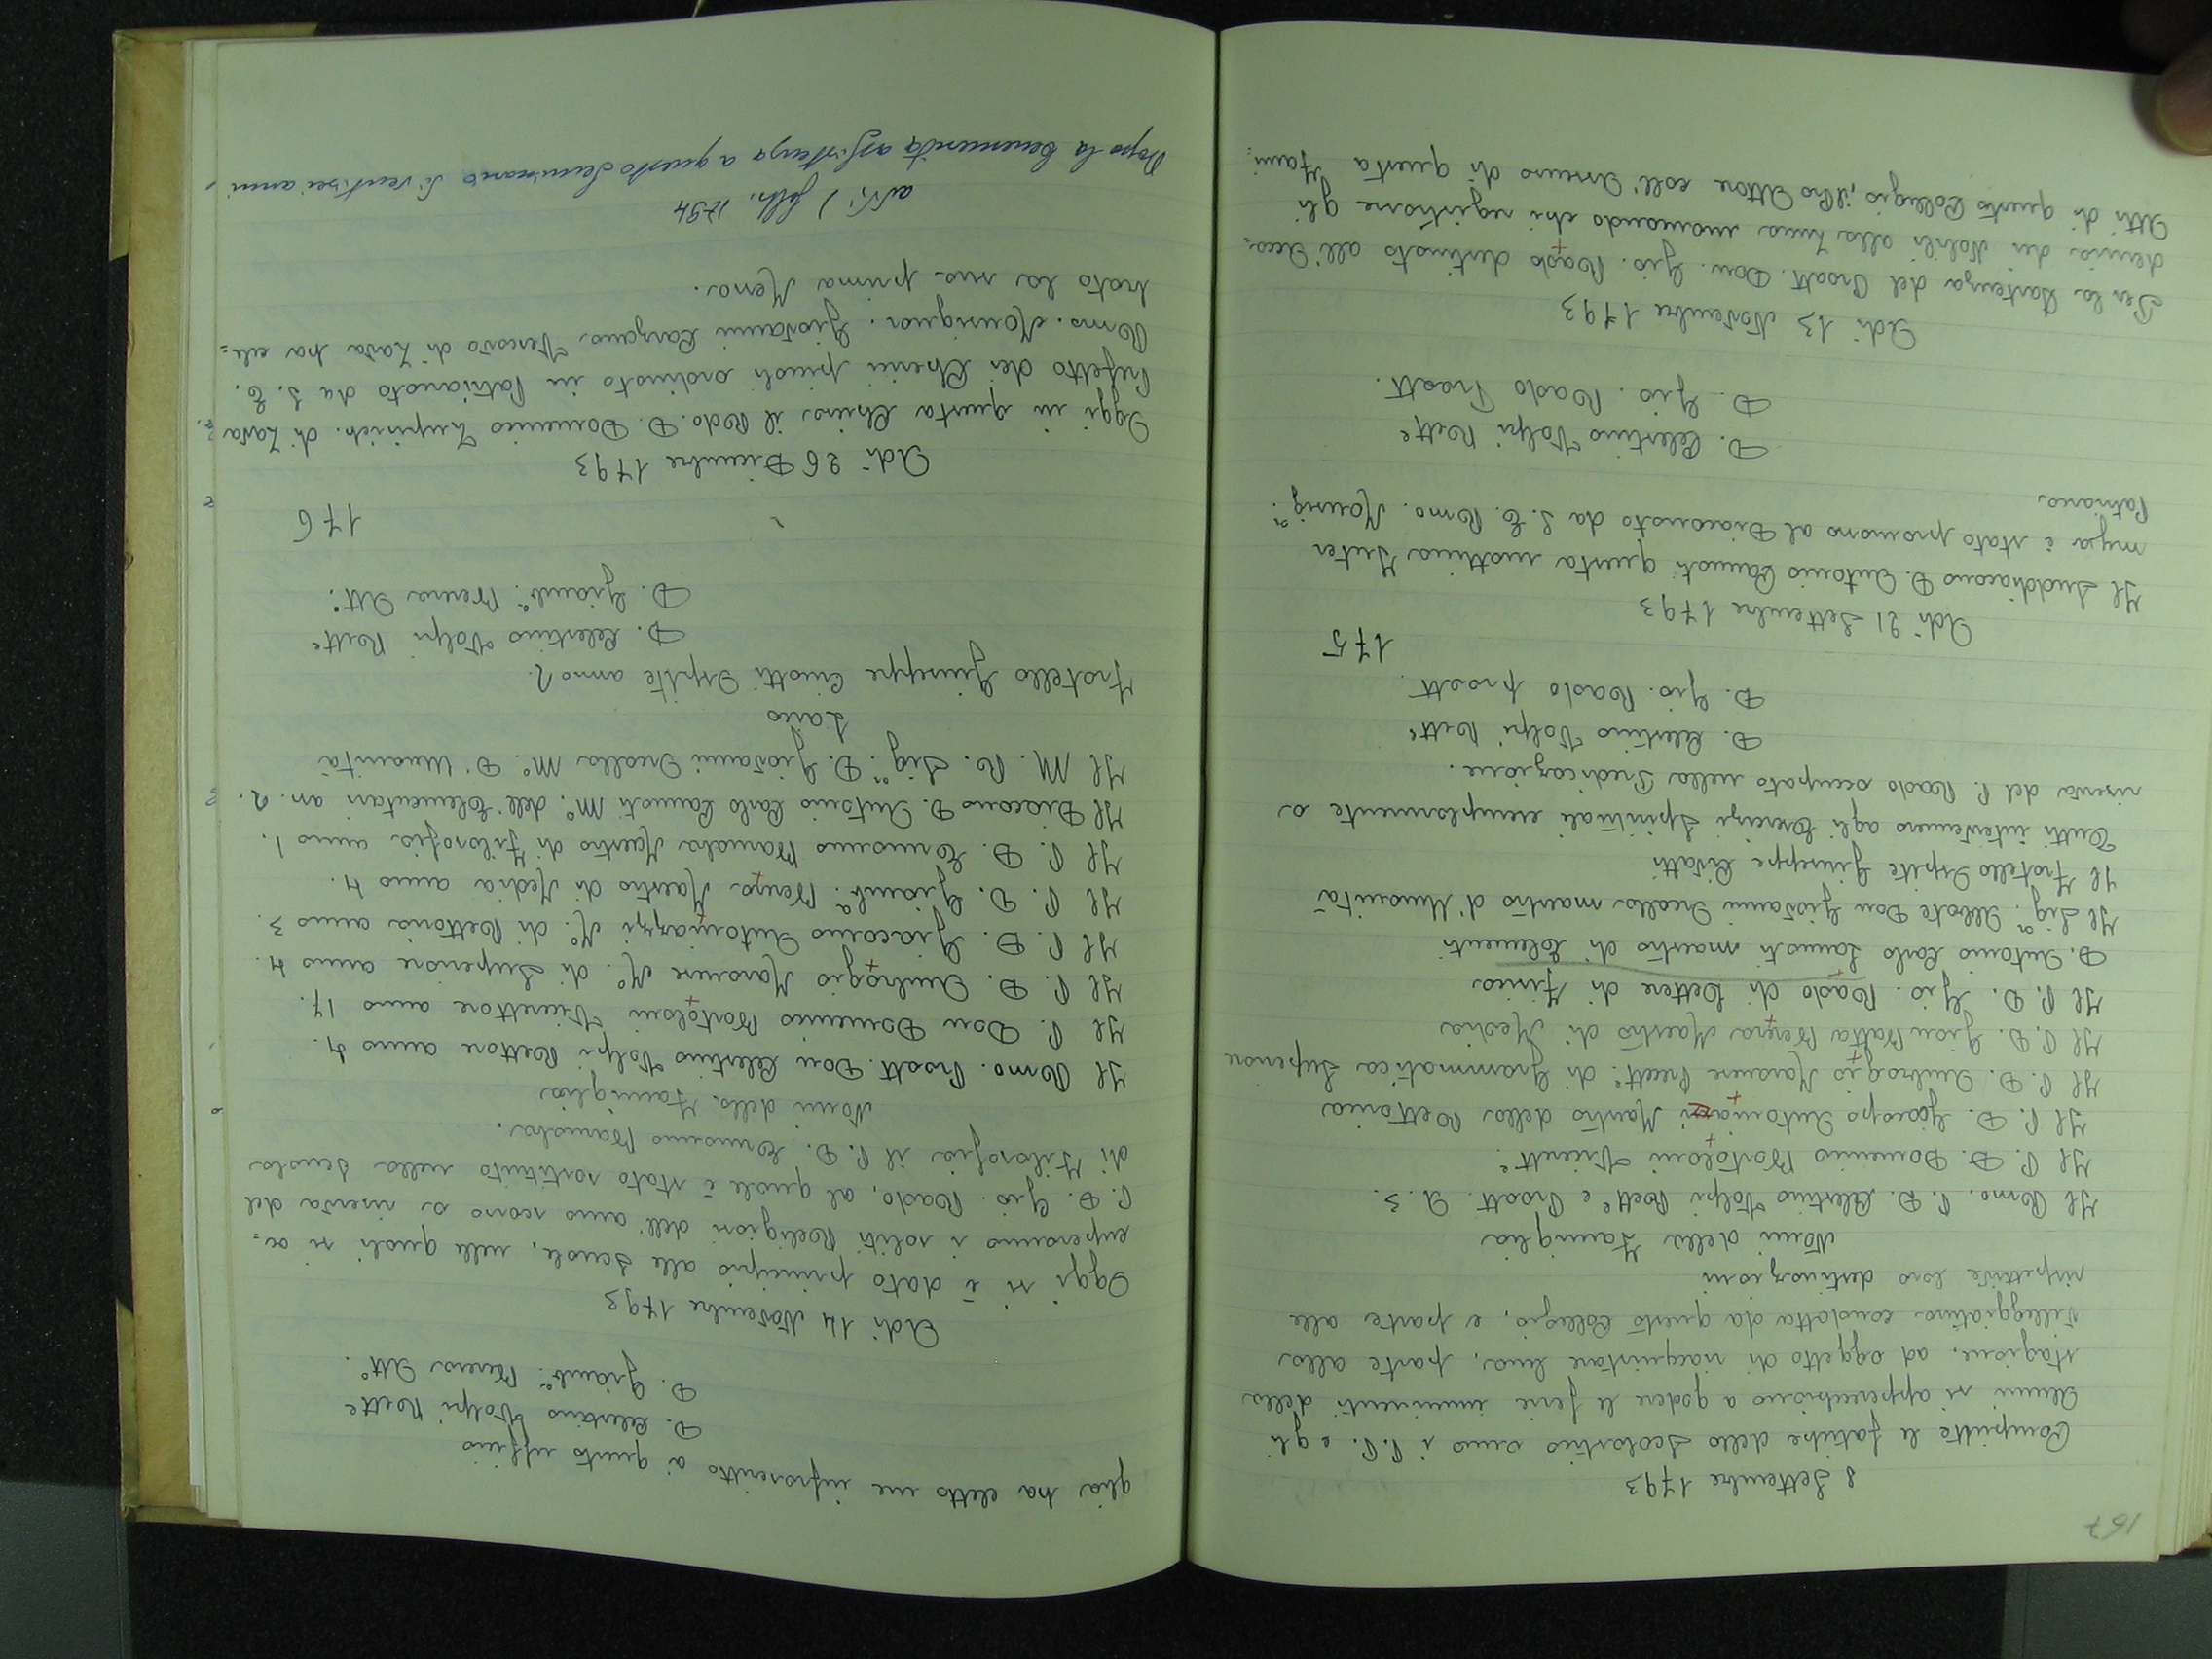 157
8 Settembre 1793
Compiute le fatiche dello scolastico anno i P.P. e gli
Alunni si apparecchiano a godere le ferie imminenti della
stagione, ad oggetto di riacquistare lena, parte alla
Villeggiatura condotta da questo Collegio, e parte alle
rispettive loro destinazioni
Nomi della Famiglia
Il Rmo. P. D. Celestino Volpi Rette e Proatt. A. 3.
Il P. D. Domenico Bortoloni Vicerette.
Il P. D. Giacopo Antoniazzi Maestro della Rettorica
Il P. D. Ambrogio Maronese Precett.e di Grammatica Superiore
Il P. D. Gian Batta Brenza Maestro di Media
Il P. D. Gio. Rado Lettore di Fisica
D. Antonio Carlo Lamosti maestro di Elementi
Il Sig.r Abbate Don Giovanni Scalla maestro d'Umanità
Il Fratello Ospite Giuseppe Civatti
Tutti intervennero agli Esercizi Spirituali esemplarmente a
riserva del P. Rado occupato nella Predicazione.
D. Celestino Volpi Rette
D. Gio. Rado proatt.
175
Adi 21 Settembre 1793
Il Suddiacono D. Antonio Camosti questa mattina Inter
mysa è stato promosso al Diaconato da S. E. Rmo. Monsig.r
Patriarca
D. Celestino Volpi Rette
D. Gio. Rado Proatt.
Adi 13 Novembre 1793
Per la Partenza del Proatt. Don. Gio. Rado destinato all' Acca=
demia dei Nobili alla Zueca mancando chi registrare gli
Atti di questo Collegio, il Pro Attore coll' Assenso di questa Fami=
glia ha eletto me infrascritto a questo ufficio
D. Celestino Volpi Rette
D. Giamb.a Brenza Att.o
Adi 14 Novembre 1793
Oggi si è dato principio alle Scuole, nelle quali si a=
esperanno i soliti Religiosi dell' anno scorso a riserva del
P. D. Gio. Rado, al quale è stato sostituito nella Scuola
di Filosofia il P. D. Ermanno Barnaba.
Nomi della Famiglia
Il Rmo. Proatt. Don Celestino Volpi Rettore anno 4.
Il P. Don Domenico Bortoloni Vicerettore anno 17.
Il P. D. Ambrogio Maronese M.o di Superiore anno 4.
Il P. D. Giacomo Antoniazzi M.o di Rettorica anno 3.
Il P. D. Giamb.a Brenza Maestro di Media anno 4.
Il P. D. Ermanno Barnaba Maestro di Filosofia anno 1.
Il Diacono D. Antonio Carlo Camosti M.o dell' Elementari an. 2.
Il M. R. Sig.r D. Giovanni Scalla M.o D' Umanità
Laico
Fratello Giuseppe Civatti Ospite anno 2.
D. Celestino Volpi Rette
D. Giamb.a Brenza Att.o
176
Adi 26 Dicembre 1793
Oggi in questa Chiesa il Rdo. D. Domenico Zupinich di Zara
Prefetto dei Chierici piccoli ordinato in Patriarcato da S. E.
Rmo. Monsignor. Giovanni Carzano Vescovo di Zara ha cele=
brato la sua prima Messa.
adi, 1 febb. 1794
Dopo la benemerita assistenza a questo Seminario di ventisei anni